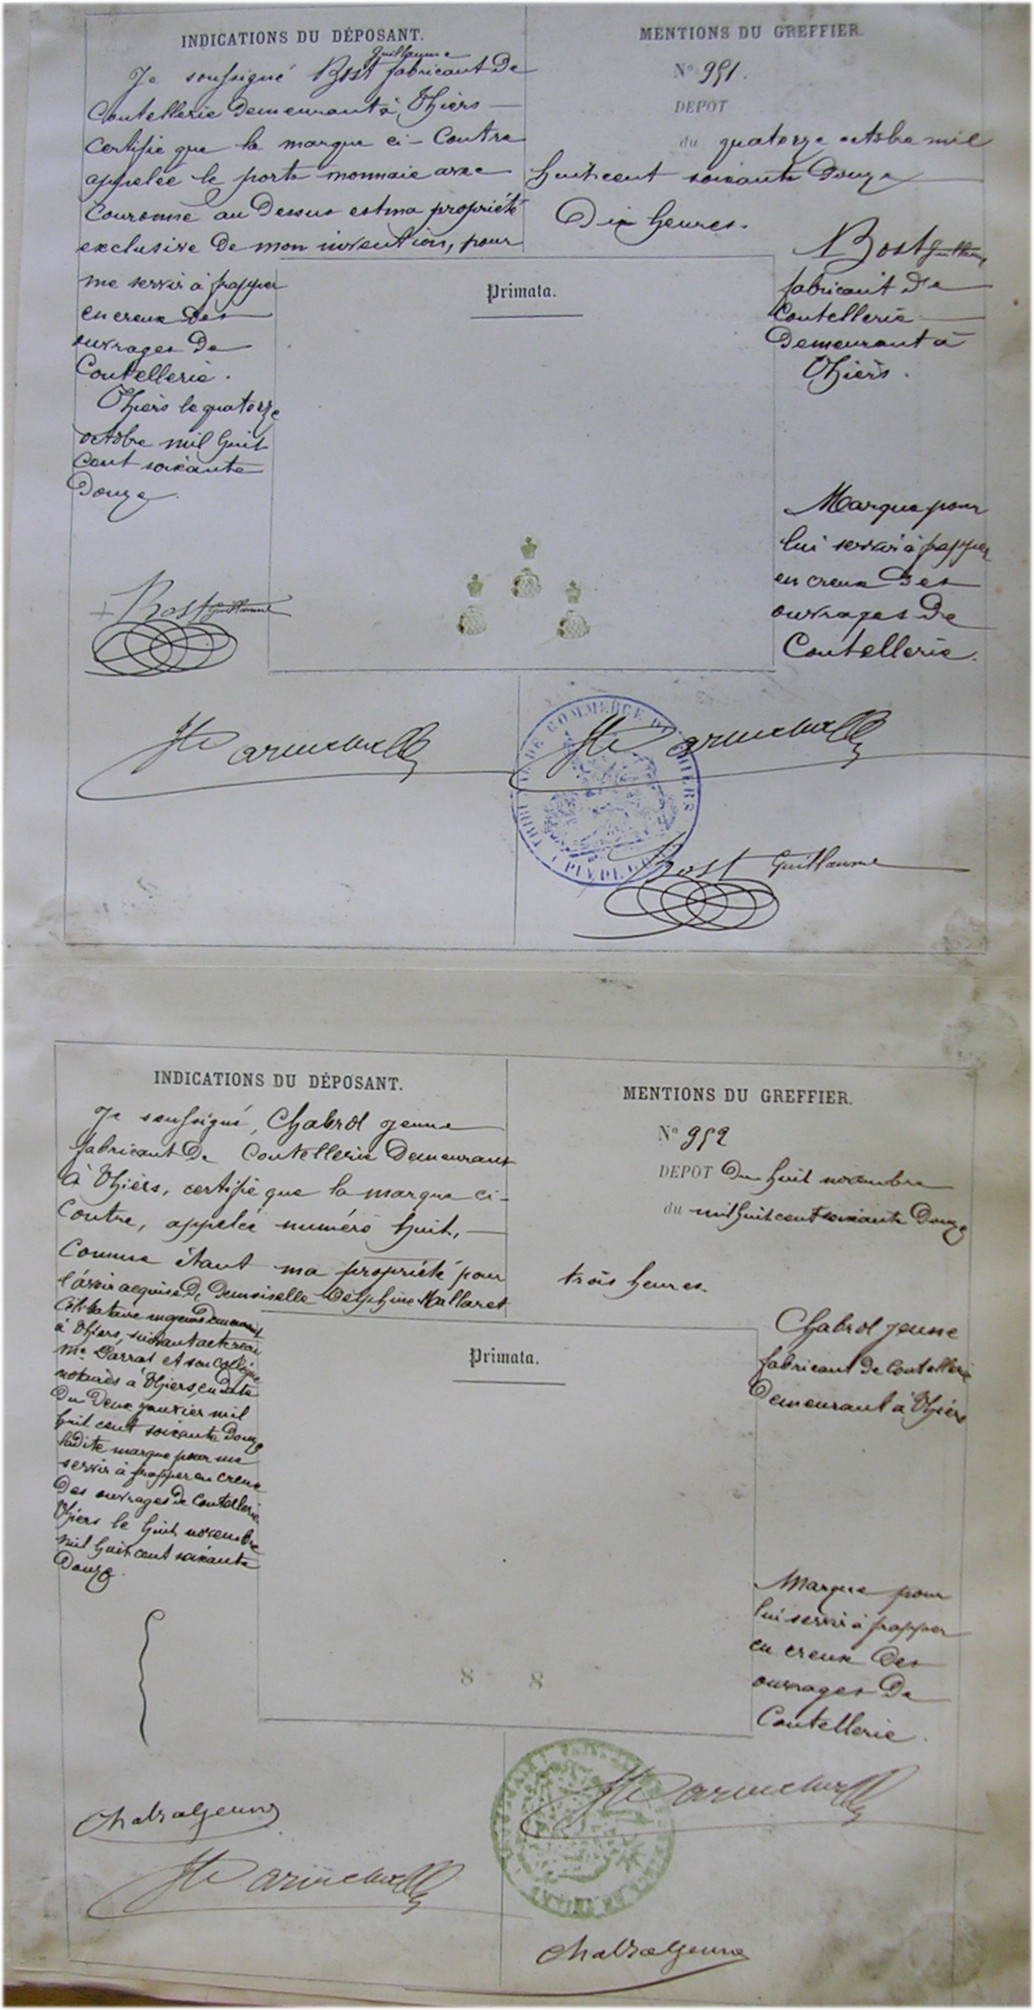 INDICATIONS DU DÉPOSANT.
Guillaume
Je soussigné Bost fabricant De
Coutellerie demeurant à Thiers
certifie que la marque ci-Contre
appelée le porte monnaie avec
Couronne au Dessus est ma propriété
exclusive De mon invention, pour
me servir à frapper
en creux Des
ouvrages De
Coutellerie.
Thiers le quatorze
octobre mil huit
cent soixante
Douze.
Bost Guillaume
MENTIONS DU GREFFIER.
N° 951.
DEPOT
du quatorze octobre mil
huit cent soixante Douze
Dix heures.
Bost Guillaume
fabricant De
Coutellerie
Demeurant à
Thiers.
Primata.
Marque pour
lui servir à frapper
en creux Des
ouvrages De
Coutellerie.
TRIBUNAL DE COMMERCE DE THIERS
PUY DE DOME
Bost Guillaume
INDICATIONS DU DÉPOSANT.
Je soussigné, Chabrol jeune
fabricant De Coutellerie Demeurant
à Thiers, certifie que la marque ci-
Contre, appelée numéro huit,
Comme étant ma propriété pour
l'avoir acquise De Demoiselle Delphine Mallaret
Célibataire majeure demeurant
à Thiers, suivant acte reçu
Me Darrot et son Collègue
notaires à Thiers, en date
Du Deux janvier mil
huit cent soixante Douze
ladite marque pour me
servir à frapper en creux
Des ouvrages de Coutellerie
Thiers le huit novembre
mil huit cent soixante
Douze.
MENTIONS DU GREFFIER.
N° 952
DEPOT Du huit novembre
du mil huit cent soixante Douze
trois heures
Chabrol jeune
fabricant de Coutellerie
Demeurant à Thiers
Primata.
Marque pour
lui servir à frapper
en creux Des
ouvrages De
Coutellerie.
8 8
Chabrol Jeune
Chabrol Jeune